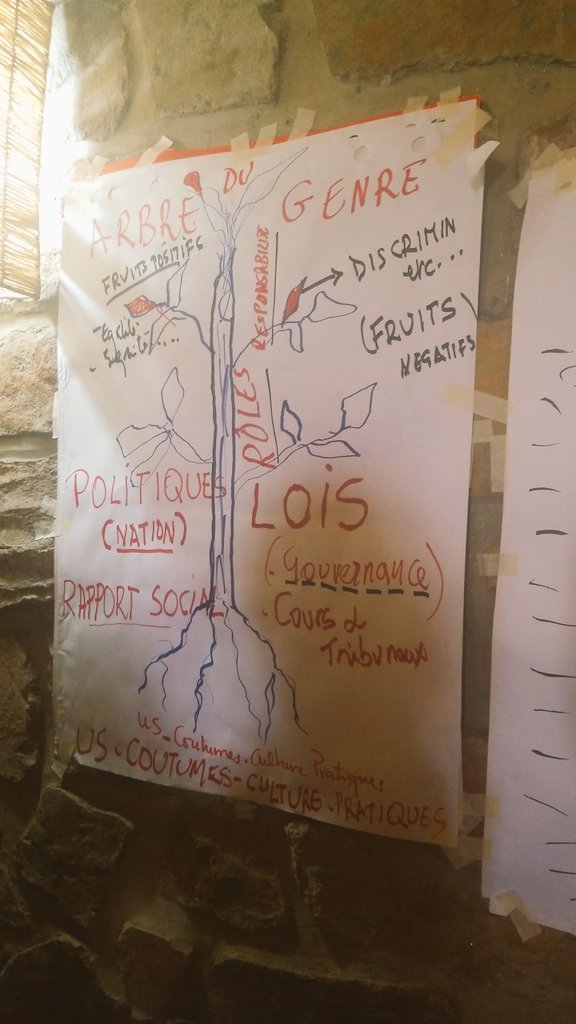 ARBRE DU GENRE
FRUITS POSITIFS
RESPONSABILITÉ
DISCRIMIN
etc...
(FRUITS
NEGATIFS
RÔLES
POLITIQUES
(NATION)
LOIS
(Gouvernance)
RAPPORT SOCIAL
. Cours &
Tribunaux
US - Coutumes - Culture Pratiques
US - COUTUMES - CULTURE - PRATIQUES